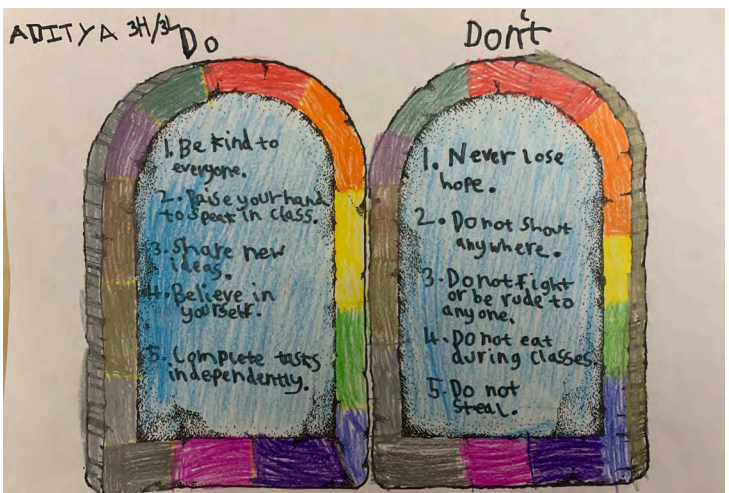 ADITYA 3H/3L
Do
1. Be kind to
everyone.
2. Raise your hand
to speak in class.
3. Share new
ideas.
4. Believe in
yourself.
5. Complete tasks
independently.
Don't
1. Never lose
hope.
2. Do not shout
anywhere.
3. Do not fight
or be rude to
anyone.
4. Do not eat
during classes.
5. Do not
steal.